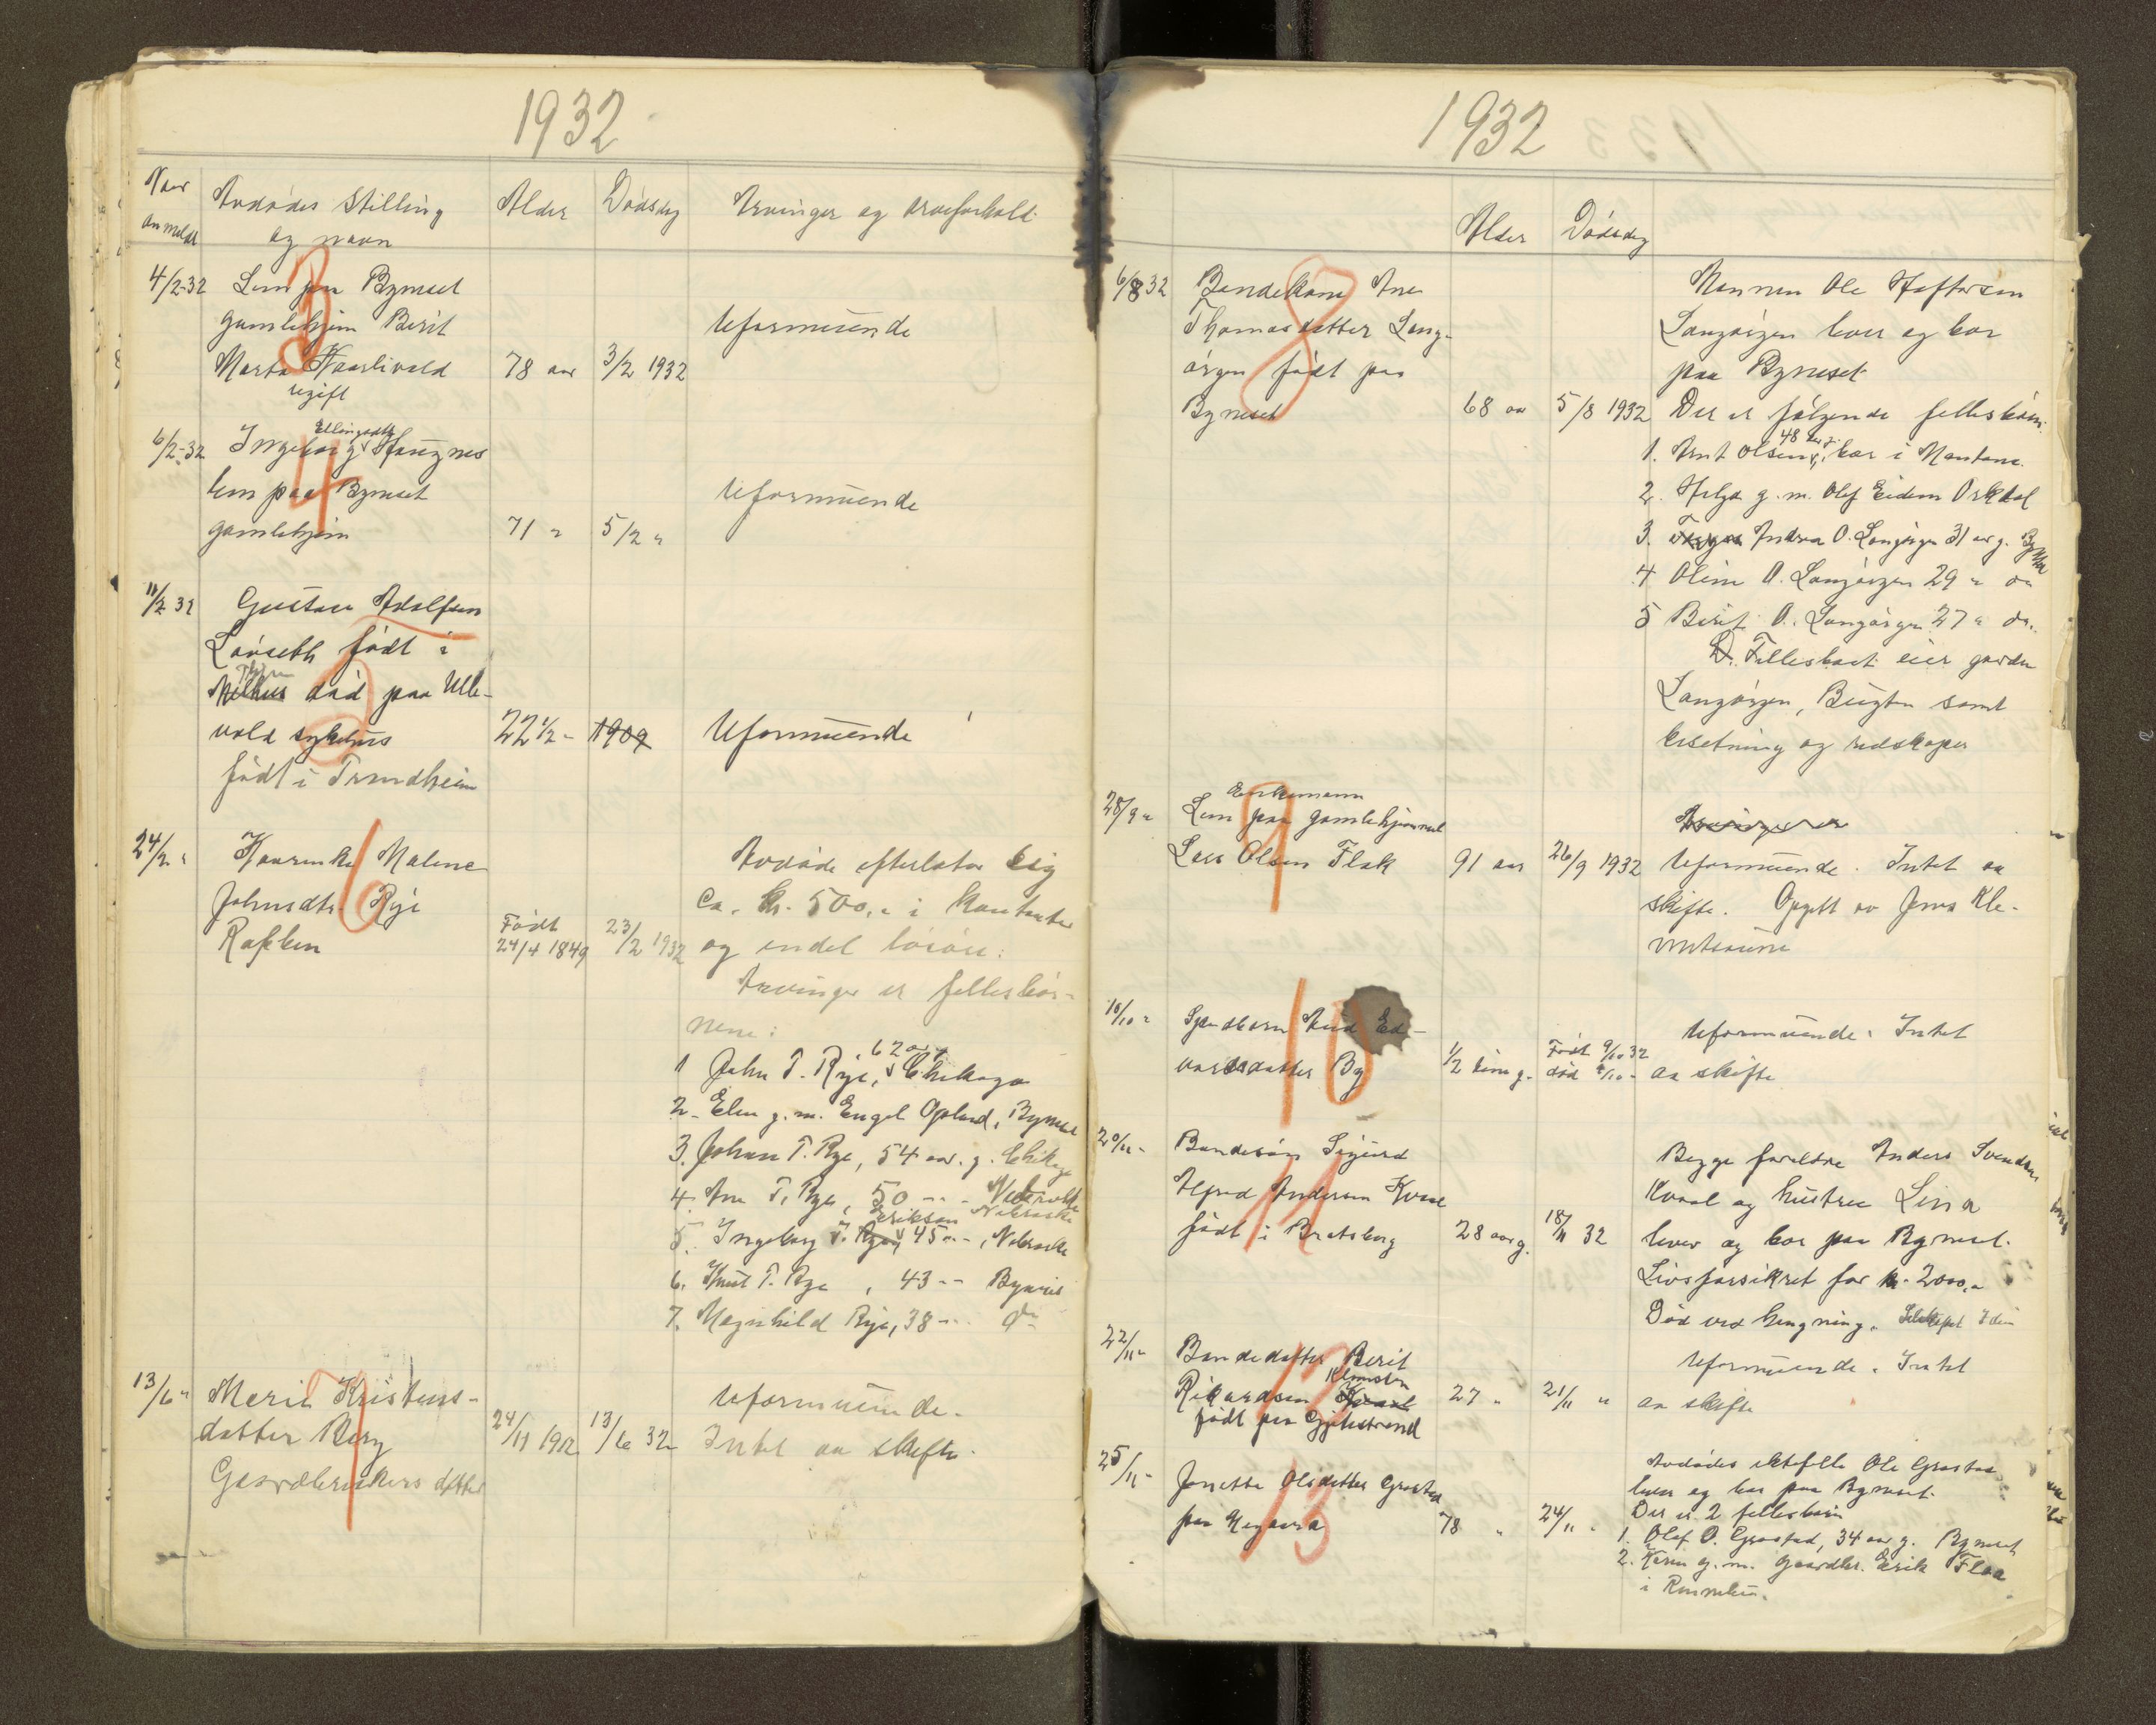 1932
Naar
anmeldt
Avdødes Stilling
og navn
Alder
Dødsdag
Arvinger og arveforhold
4/2-32
3
Lem paa Byneset
gamlehjem Berit
Marta
ugift
78 aar
3/2 1932
Uformuende
6/2-32
4
Ellingsdtr
Ingeborg Haugnes
lem paa Byneset
gamlehjem
71 "
5/2 "
Uformuende
11/2 32
Gustav Adolfsen
Løvseth født i
død paa Ulle-
vold sykehus
født i Trondheim
22 1/2 "
1909
Uformuende
24/2 "
6
Malene
Johnsdtr Rye
Født
24/4 1849
23/2 1932
Avdøde efterlater sig
Ca. kr. 500,- i kontanter
og endel løsøre.
Arvinger er fellesbør-
nene:
1 John T. Rye, 62 aar, Chikago
2. Elen g. m. Engel Opland, Byneset
3. Johan T. Rye, 54 aar. g. Chikago
4. Ane T. Rye, 50 - - - Nebraska
5. Ingeborg T. Rye Erikson 45 - -, Nebraska
6. Knut T. Rye, 43 - - Byneset
7. Magnhild Rye, 38 - - do
13/6 "
7
Merit Kristens-
datter Berg
Gaardbrukers datter
24/11 1912
13/6 32
Uformuende.
Intet aa skifte.
1932
Alder
Dødsdag
6/8 32
8
Bondekone Ane
Thomasdatter Lang-
ørgen født paa
Byneset
68 aar
5/8 1932
Mannen Ole Haftorsen
Langørgen lever og bor
paa Byneset
Der er følgende fellesbørn:
1. Arnt Olsen, 48 aar g. bor i Montana.
2. Helga g. m. Olaf Eidem Orkdal
3. Andrea O. Langørgen 31 aar g. Byneset
4 Oline O. Langørgen 29 " do
5 Berit O. Langørgen 27 " do.
Fellesboet eier gården
Langørgen, Bugten samt
besetning og redskaper
28/9 "
9
Enkemann
Lem paa gamlehjemmet
Lars Olsen Flak
91 aar
26/9 1932
Arvinger er
Uformuende. Intet aa
skifte. Opgitt av Jens Kle-
10/10 "
10
Ed-
vardsdatter By
1/2 time g.
Født 9/10 32
død 9/10 -
Uformuende. Intet
aa skifte
20/11 -
11
Bondesøn Sigurd
Alfred Andersen Kvaal
født i Bratsberg
28 aar g.
18/11 32
Begge foreldre Anders Svendsen
Kvaal og hustru Lina
lever og bor paa Byneset.
Livsforsikret for kr. 2000,-
Død ved hengning. Selskapet Idun
22/11 -
12
Bondedatter Berit
Rikardsen Klemsten Kvaal
født paa Gjelstrand
27 "
21/11 "
Uformuende. Intet
aa skifte
25/11 -
13
Jonetta Olsdatter Grostad
paa
78 "
24/11 "
Avdødes ektefelle Ole Grostad
lever og bor paa Byneset.
Der er 2 fellesbørn
1. Olaf O. Grostad, 34 aar g. Byneset
2. Karen g. m. gaardbr. Erik Flaa
i